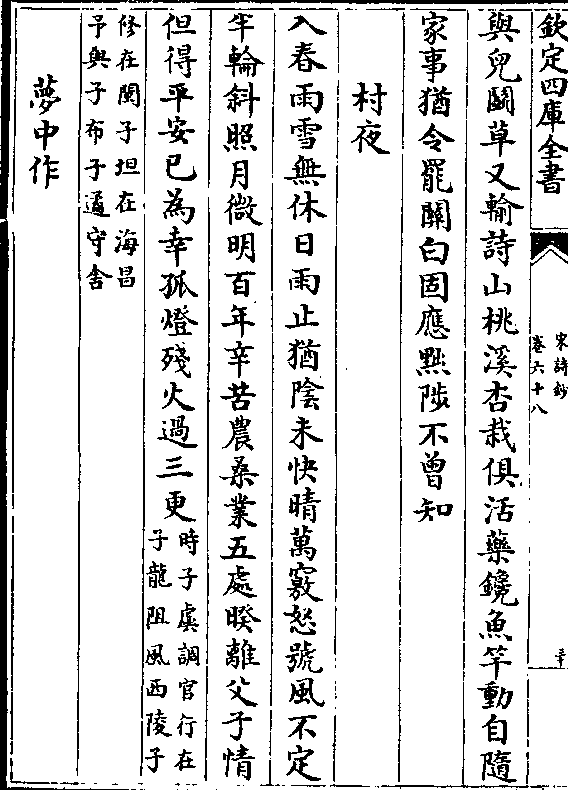 欽定四庫全書
宋詩鈔
卷六十八
三十
與兒鬭草又輸詩山桃溪杏栽俱活藥鑱魚竿動自隨
家事猶令罷關白固應黜陟不曾知
村夜
入春雨雪無休日雨止猶陰未快晴萬竅怒號風不定
半輪斜照月微明百年辛苦農桑業五處暌離父子情
但得平安已為幸孤燈殘火過三更
時子虡調官行在
子龍阻風西陵子
修在閩子坦在海昌
予與子布子遹守舍
夢中作